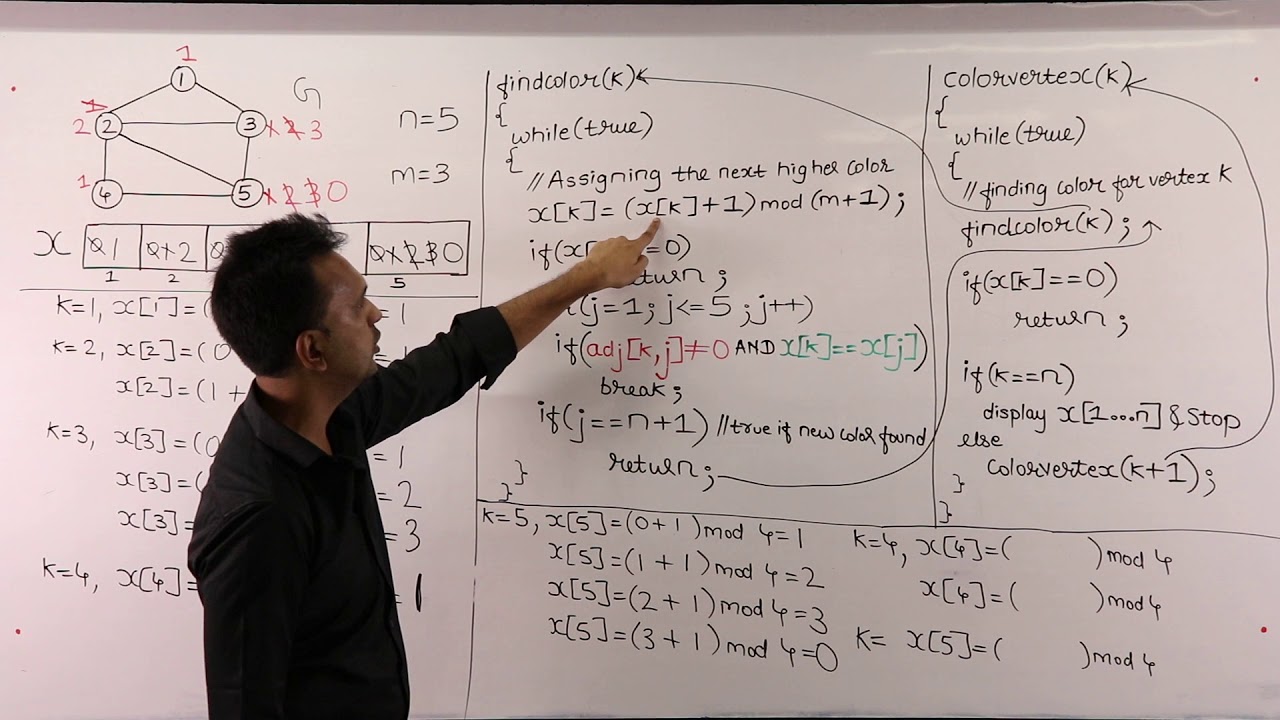 1
1
G
1
2 2
3 1 2 3
n=5
m=3
1 4
5 1 2 3 0
x 0 1 0 1 2 0 1 2 3 0
1 2 5
k=1, x[1]=( =1
k=2, x[2]=(0
x[2]=(1+
k=3, x[3]=(0 =1
x[3]= =2
x[3]= =3
k=4, x[4]= =1
findcolor(k)
{
while(true)
{
//Assigning the next higher color
x[k]=(x[k]+1)mod(m+1);
if(x[ =0)
return;
(j=1;j<=5;j++)
if(adj[k,j]≠0 AND x[k]==x[j])
break;
if(j==n+1) //true if new color found
return;
}
}
colorvertex(k)
{
while(true)
{
//finding color for vertex k
findcolor(k);
if(x[k]==0)
return;
if(k==n)
display x[1...n] & Stop
else
colorvertex(k+1);
}
}
k=5, x[5]=(0+1)mod 4=1
x[5]=(1+1)mod 4=2
x[5]=(2+1)mod 4=3
x[5]=(3+1)mod 4=0
k=4, x[4]=( )mod 4
x[4]=( )mod 4
k= x[5]=( )mod 4